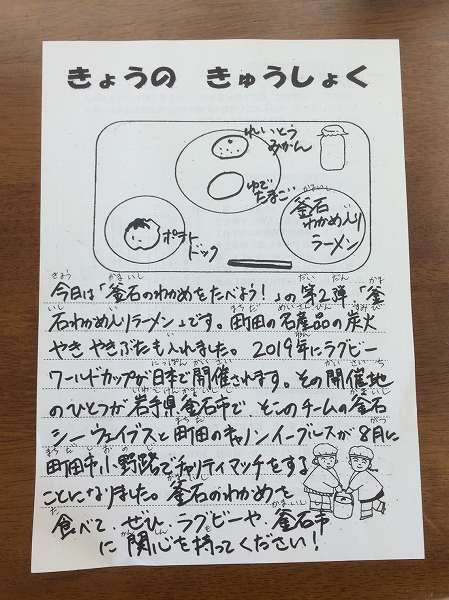 きょうの きゅうしょく
れいとう
みかん
ゆで
たまご
釜石
わかめ入り
ラーメン
ポテト
ドッグ
今日は「釜石のわかめをたべよう！」の第2弾「釜
石わかめ入りラーメン」です。町田の名産品の炭火
やき やきぶたも入れました。2019年にラグビー
ワールドカップが日本で開催されます。その開催地
のひとつが岩手県釜石市で そこのチームの釜石
シーウェイブスと町田のキャノンイーグルスが8月に
町田市小野路でチャリティマッチをする
ことになりました。釜石のわかめを
食べて、ぜひ、ラグビーや、釜石市
に関心を持ってください！